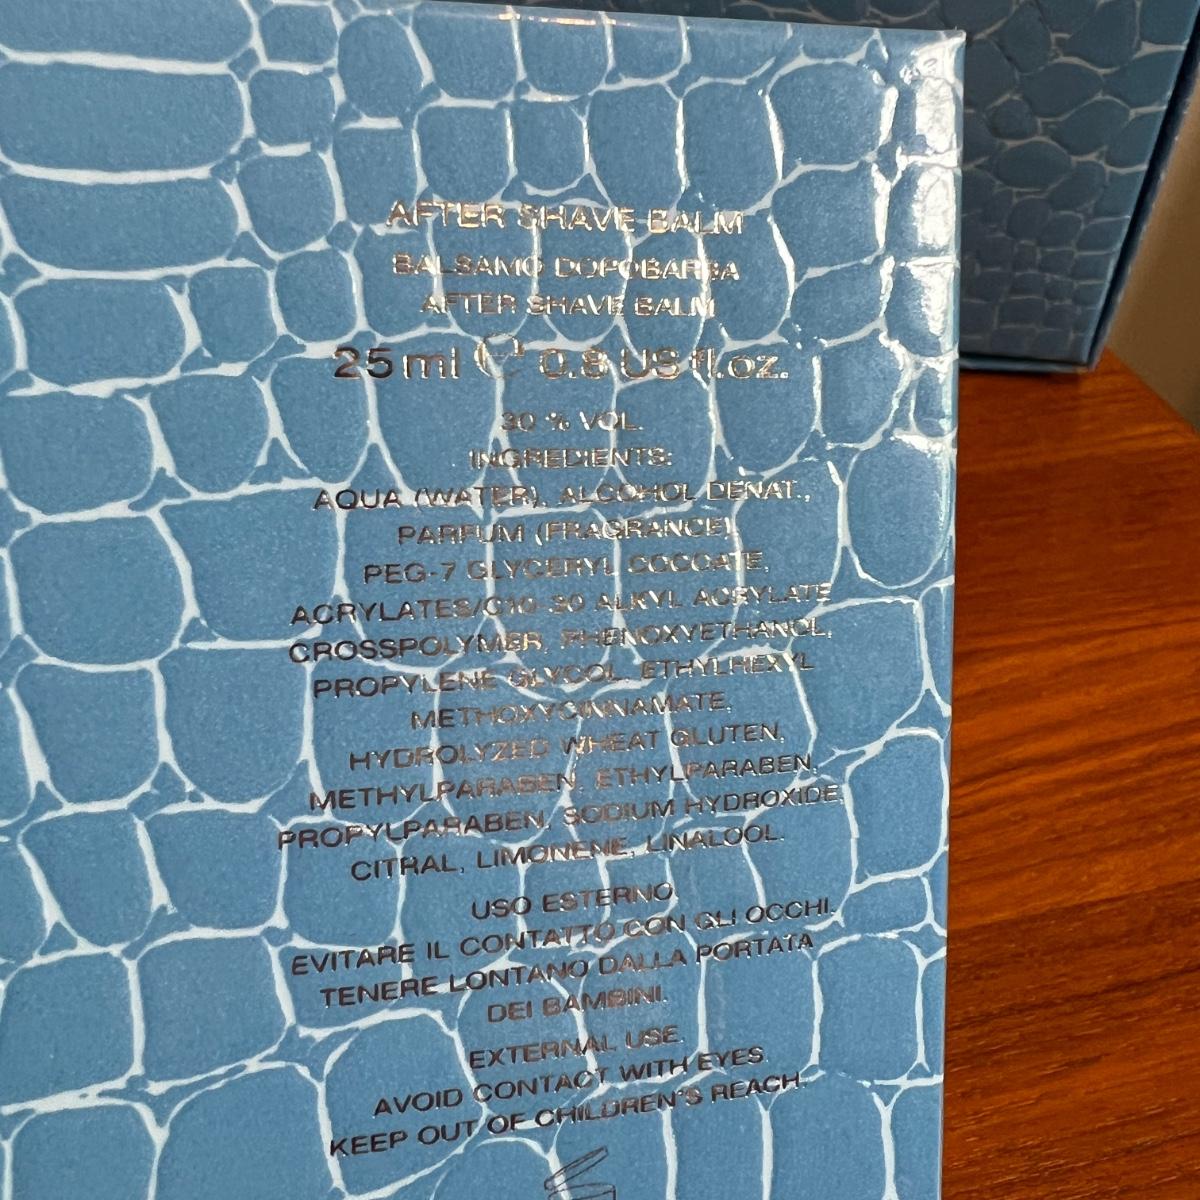 AFTER SHAVE BALM
BALSAMO DOPOBARBA
AFTER SHAVE BALM
25 ml ℮ 0.8 US fl.oz.
30 % VOL.
INGREDIENTS:
AQUA (WATER), ALCOHOL DENAT.,
PARFUM (FRAGRANCE),
PEG-7 GLYCERYL COCOATE,
ACRYLATES/C10-30 ALKYL ACRYLATE
CROSSPOLYMER, PHENOXYETHANOL,
PROPYLENE GLYCOL, ETHYLHEXYL
METHOXYCINNAMATE,
HYDROLYZED WHEAT GLUTEN,
METHYLPARABEN, ETHYLPARABEN,
PROPYLPARABEN, SODIUM HYDROXIDE,
CITRAL, LIMONENE, LINALOOL.
USO ESTERNO.
EVITARE IL CONTATTO CON GLI OCCHI.
TENERE LONTANO DALLA PORTATA
DEI BAMBINI.
EXTERNAL USE.
AVOID CONTACT WITH EYES.
KEEP OUT OF CHILDREN'S REACH.